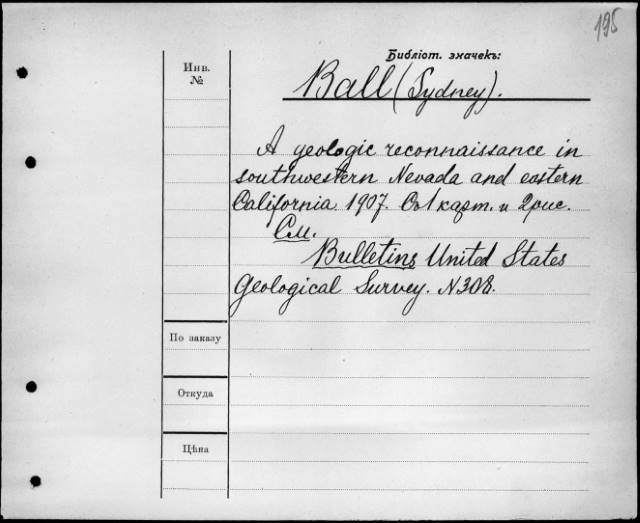 195
Библіот. значекъ:
Инв.
№
Ball (Sydney).
A geologic reconnaissance in
southwestern Nevada and eastern
California 1907. Съ 1 карт. и 2 рис.
См.
Bulletins United States
Geological Survey. N 308.
По заказу
Откуда
Цѣна